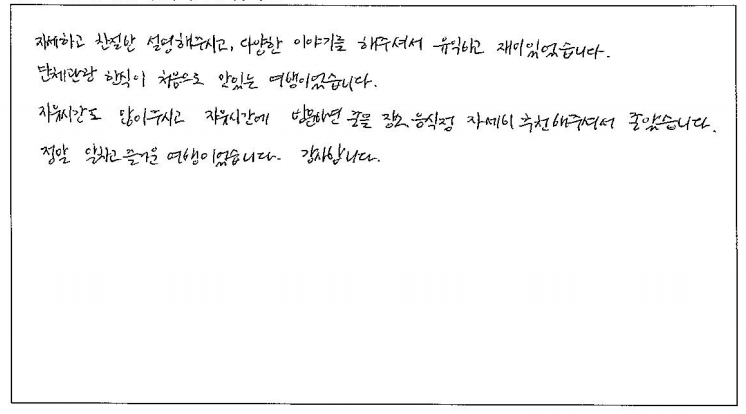 자세하고 친절한 설명해주시고, 다양한 이야기를 해주셔서 유익하고 재미있었습니다.
단체관광 한식이 처음으로 맛있는 여행이었습니다.
자유시간도 많이주시고 자유시간에 방문하면 좋을 장소, 음식점 자세히 추천해주셔서 좋았습니다.
정말 알차고 즐거운 여행이었습니다. 감사합니다.